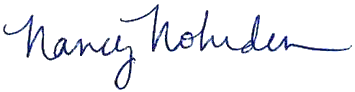 Nancy Nohrden